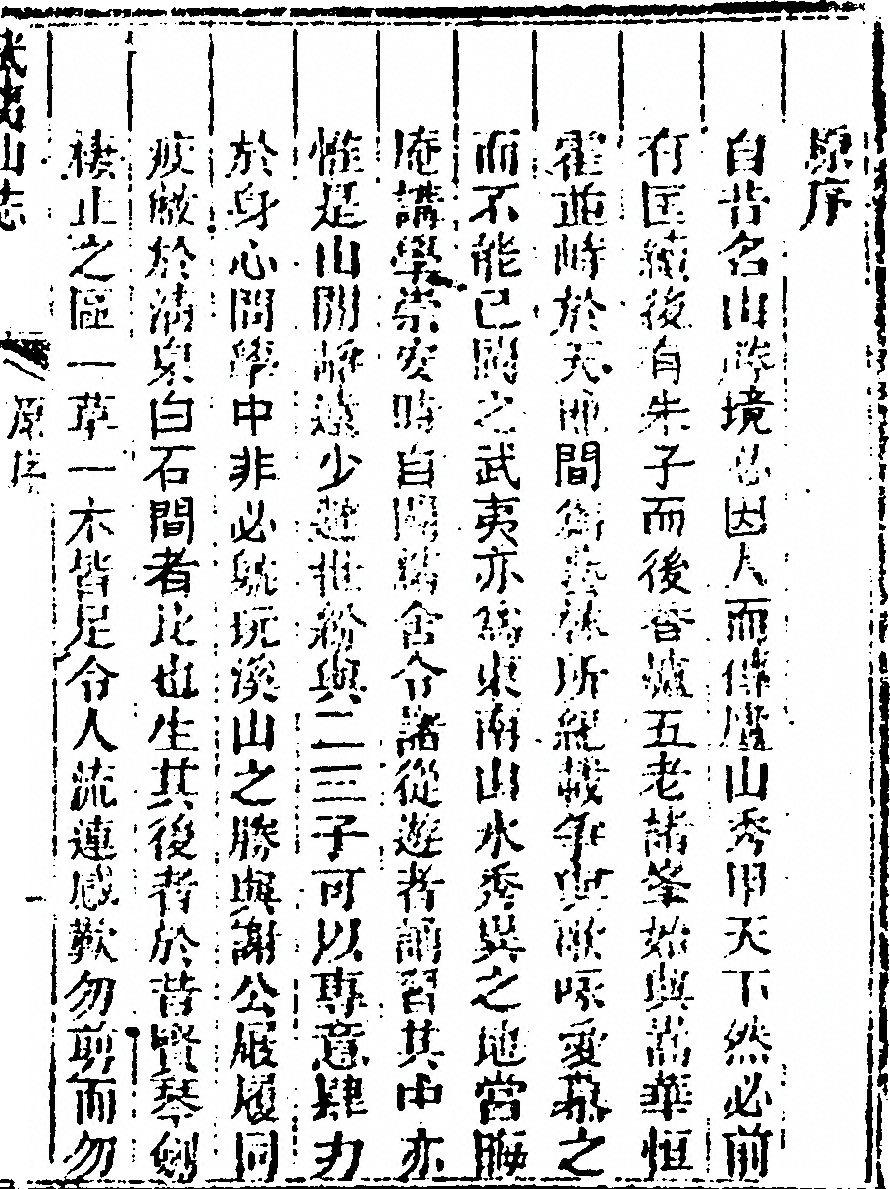 原序
自昔名山勝境必因人而傳廬山秀甲天下然必前
有匡續後有朱子而後香爐五老諸峯始與嵩華恒
霍並峙於天地間為藝林所紀載爭與歌咏愛慕之
而不能已閩之武夷亦為東南山水秀異之地當晦
庵講學崇安時自闢結舍令諸從遊者誦習其中亦
惟是山閒靜遠少避世紛與二三子可以專意肆力
於身心問學中非必躭玩溪山之勝與謝公屐履同
疲敝於清泉白石間者比也生其後者於昔賢琴劍
棲止之區一草一木皆足令人流連感歎勿剪而勿
武夷山志
原序